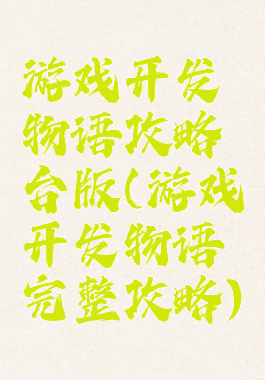 游戏开发
物语攻略
台版(游戏
开发物语
完整攻略)